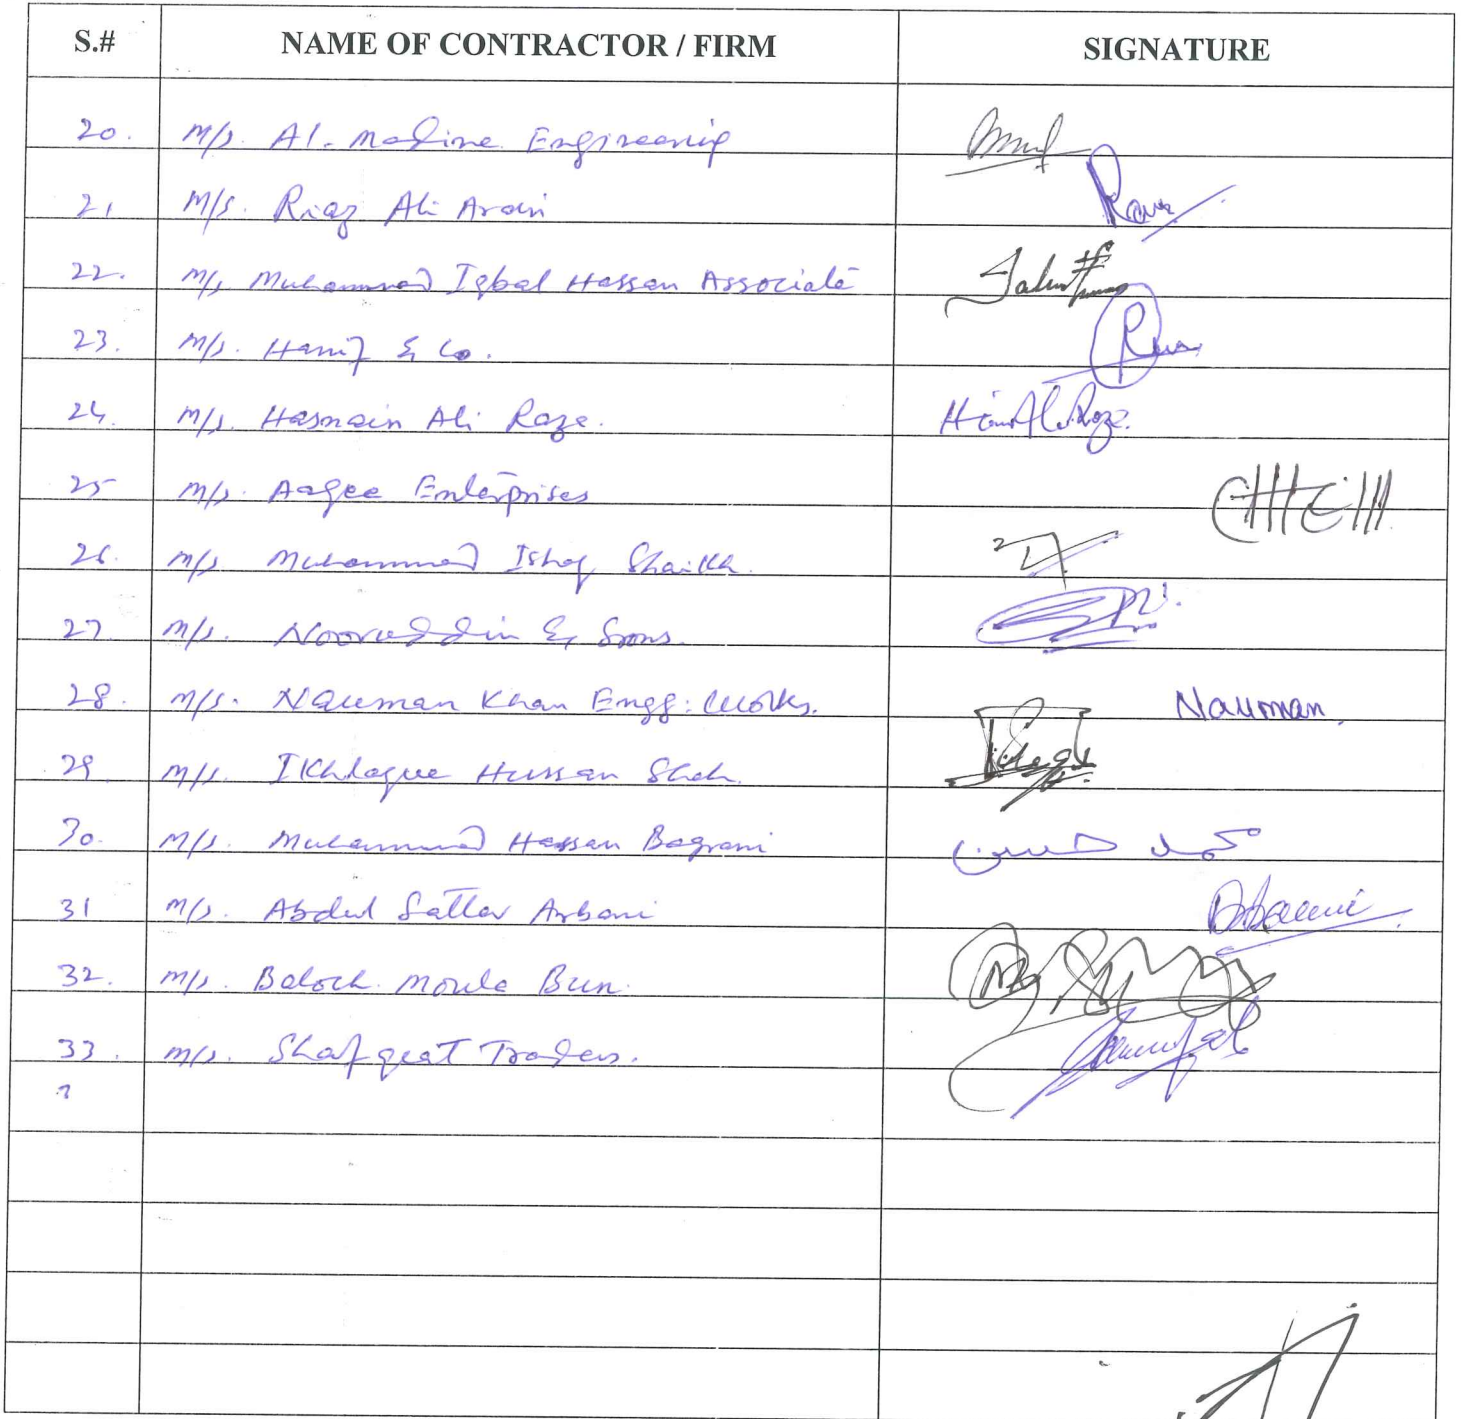 S.# NAME OF CONTRACTOR / FIRM SIGNATURE
20. M/s. Al-Madina Engineering
21 M/s. Riaz Ali
22. M/s Muhammad Iqbal Hassan Associate
23. M/s. Hanif & Co.
24. M/s. Hasnain Ali Raza.
25 M/s. Aagee Enterprises
26. M/s Muhammad Ishaq Shaikh.
27. M/s. Nooruddin & Sons.
28. M/s. Nauman Khan Engg: Works. Nauman.
29. M/s. Ikhlaque Hussan Shah.
30. M/s. Muhammad Hassan Bagrani محمد حسن
31 M/s. Abdul Sattar Arbani
32. M/s. Baloch Moula Bux.
33. M/s. Shafqeat Traders.